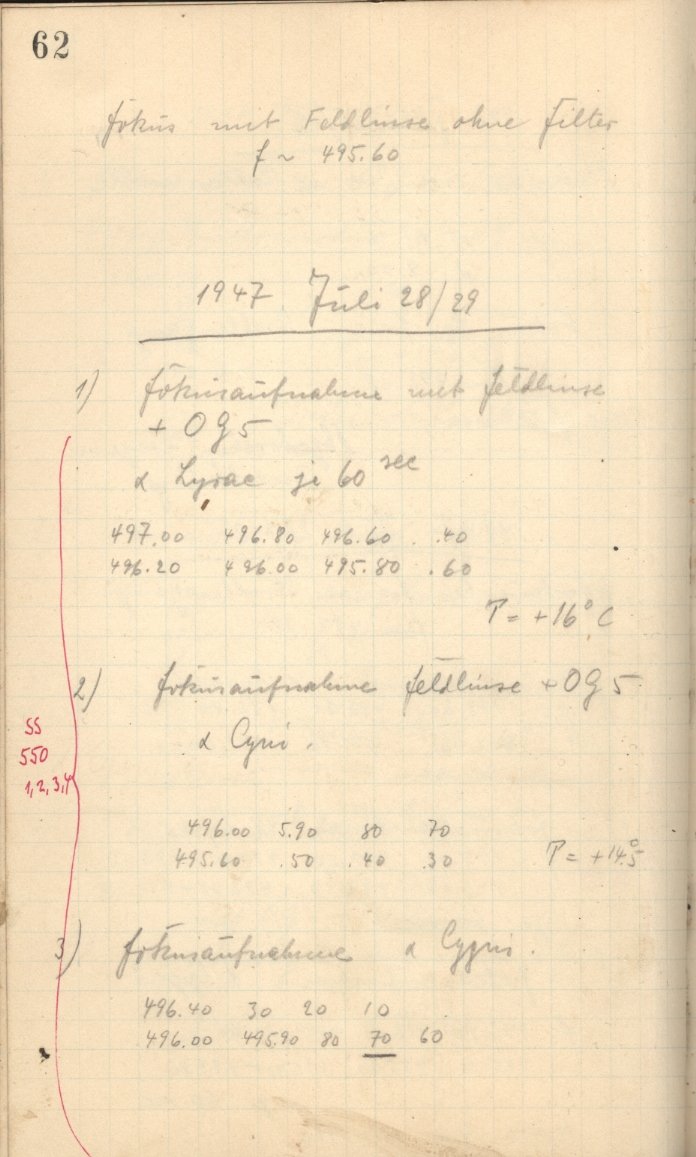 62
Fokus mit Feldlinse ohne Filter
f ~ 495.60
1947 Juli 28/29
1) Fokusaufnahme mit Feldlinse
+ OG5
α Lyrae je 60 sec
497.00 496.80 496.60 .40
496.20 496.00 495.80 .60
T = +16° C
2) Fokusaufnahme Feldlinse + OG5
α Cygni.
SS
550
1,2,3,4
496.00 5.90 80 70
495.60 .50 .40 .30 T = +14.5°
3) Fokusaufnahme α Cygni.
496.40 30 20 10
496.00 495.90 80 70 60